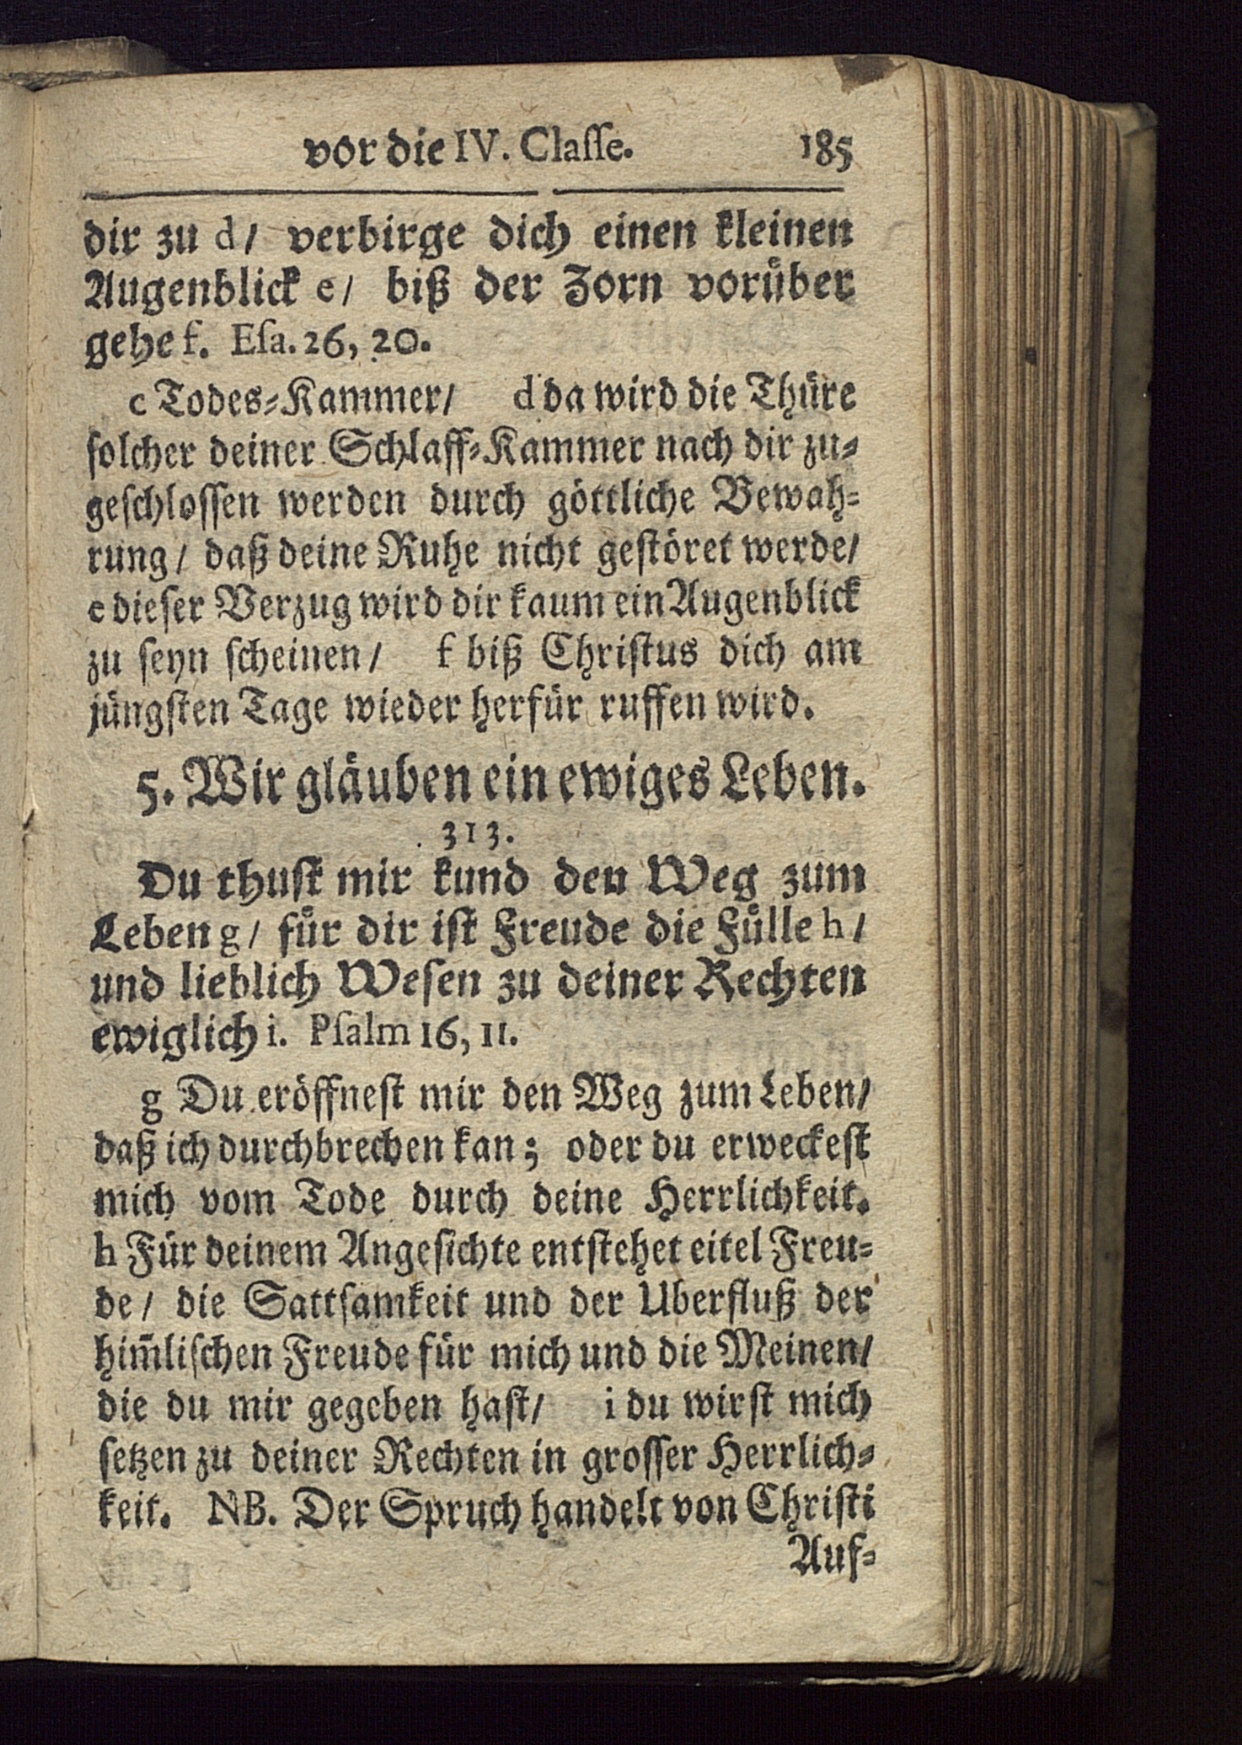 vor die IV. Classe. 185
dir zu d/ verbirge dich einen kleinen
Augenblick e/ biß der Zorn vorüber
gehe f. Esa. 26, 20.
c Todes-Kammer/ d da wird die Thüre
solcher deiner Schlaff-Kammer nach dir zu-
geschlossen werden durch göttliche Bewah-
rung/ daß deine Ruhe nicht gestöret werde/
e dieser Verzug wird dir kaum ein Augenblick
zu seyn scheinen/ f biß Christus dich am
jüngsten Tage wieder herfür ruffen wird.
5. Wir gläuben ein ewiges Leben.
313.
Du thust mir kund den Weg zum
Leben g/ für dir ist Freude die Fülle h/
und lieblich Wesen zu deiner Rechten
ewiglich i. Psalm 16, 11.
g Du eröffnest mir den Weg zum Leben/
daß ich durchbrechen kan; oder du erweckest
mich vom Tode durch deine Herrlichkeit.
h Für deinem Angesichte entstehet eitel Freu-
de/ die Sattsamkeit und der Uberfluß der
him̃lischen Freude für mich und die Meinen/
die du mir gegeben hast/ i du wirst mich
setzen zu deiner Rechten in grosser Herrlich-
keit. NB. Der Spruch handelt von Christi
Auf-